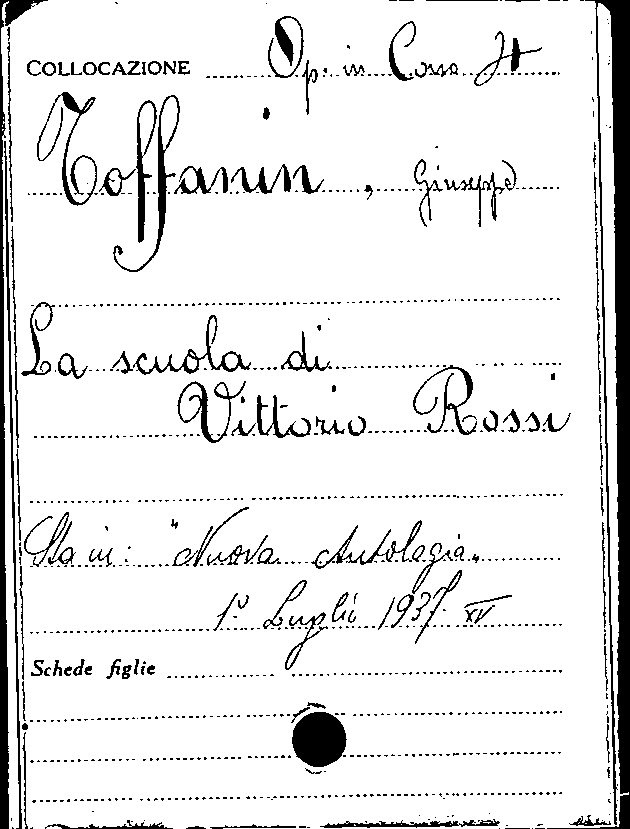 COLLOCAZIONE Op. in Corso It
Toffanin, Giuseppe
La scuola di
Vittorio Rossi
Sta in: "Nuova Antologia"
1º Luglio 1937. XV
Schede figlie